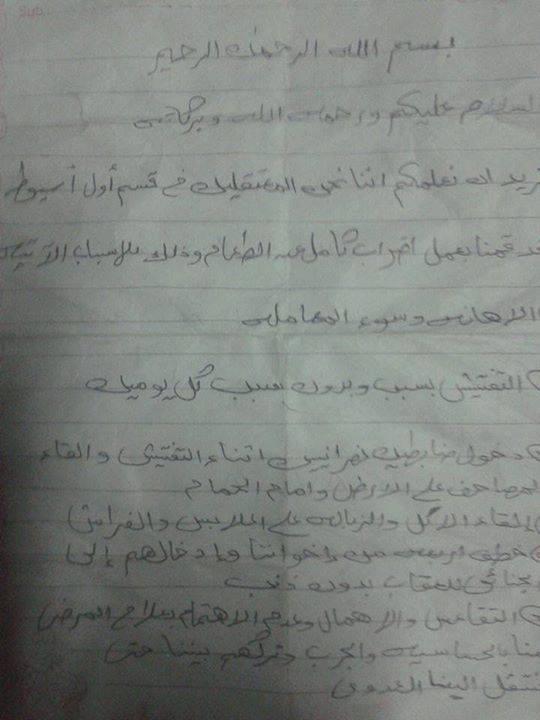 Sub
بسم الله الرحمن الرحيم
السلام عليكم ورحمات الله وبركاته
نريد ان نعلمكم اننا نحن المعتقلين في قسم أول أسيوط
قد قمنا بعمل اضراب كامل عن الطعام وذلك للاسباب الآتية
الاهانه وسوء المعامله
التفتيش بسبب وبدون سبب كل يومين
دخول ضابطين نصرانيين اثناء التفتيش والقاء
المصاحف على الارض وامام الحمام
إلقاء الاكل والزباله على الملابس والفراش
خطف اربعه من إخواننا وإدخالهم إلى
جنائى للعقاب بدون ذنب
التقاعس والاهمال وعدم الاهتمام بعلاج المرضى
منا بالحساسيه والجرب وتركهم بيننا حتى
تنتقل الينا العدوى